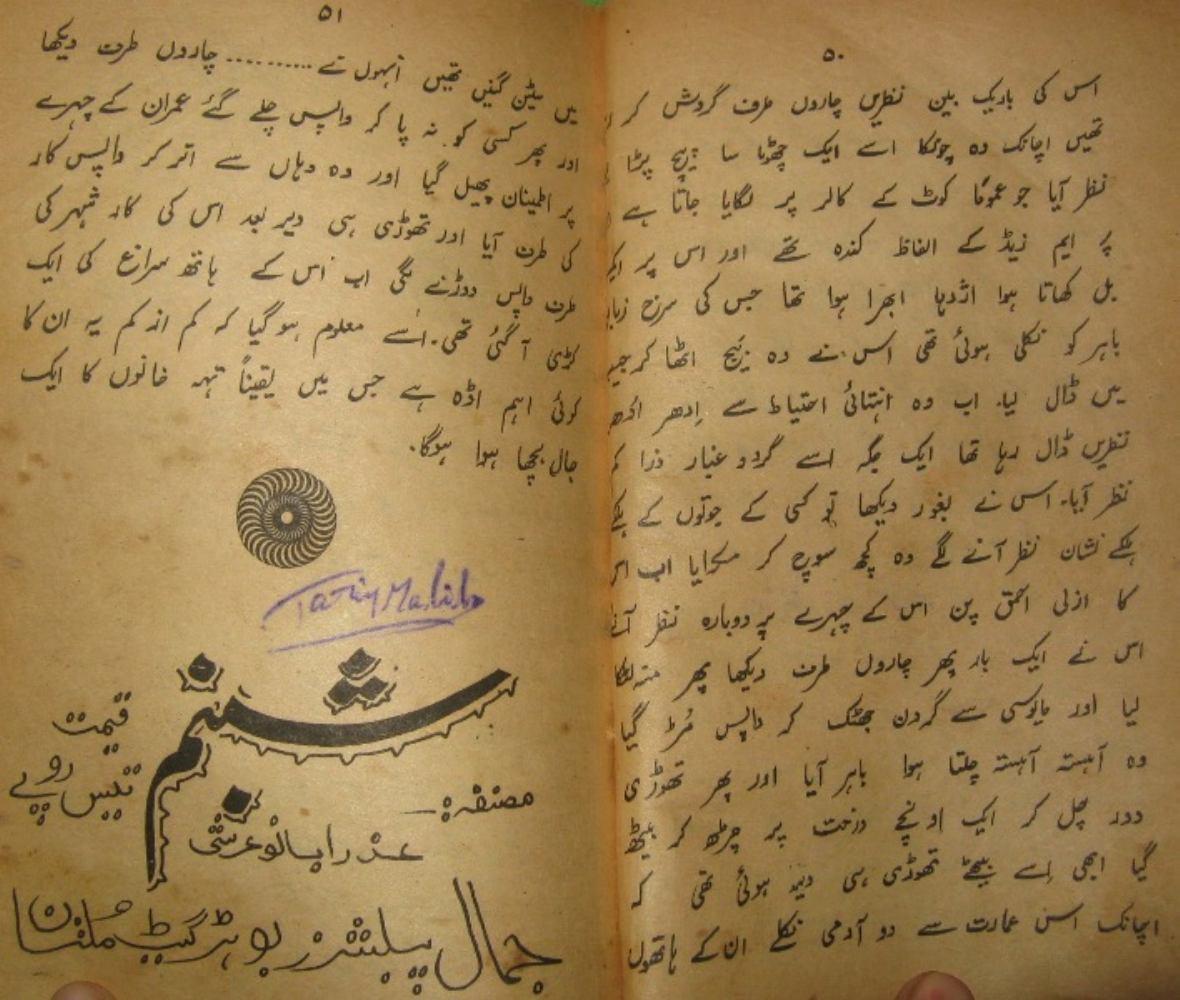 ۵۰
اس کی باریک بین نظریں چاروں طرف گردش کر
تھیں اچانک وہ چونکا اسے ایک چھوٹا سا بیج پڑا
نظر آیا جو عموماً کوٹ کے کالر پر لگایا جاتا ہے
پر ایم زیڈ کے الفاظ کندہ تھے اور اس پر ایک
بل کھاتا ہوا اژدہا ابھرا ہوا تھا جس کی سرخ زبان
باہر کو نکلی ہوئی تھی اس نے وہ بیج اٹھا کر جیب
میں ڈال لیا۔ اب وہ انتہائی احتیاط سے اِدھر اُدھر
نظریں ڈال رہا تھا ایک جگہ اسے گرد و غبار ذرا کم
نظر آیا۔ اس نے بغور دیکھا تو کسی کے جوتوں کے ہلکے
ہلکے نشان نظر آنے لگے وہ کچھ سوچ کر مسکرایا اب اس
کا ازلی احمق پن اس کے چہرے پر دوبارہ نظر آنے
اس نے ایک بار پھر چاروں طرف دیکھا پھر منہ لٹکا
لیا اور مایوسی سے گردن جھٹک کر واپس مُڑ گیا
وہ آہستہ آہستہ چلتا ہوا باہر آیا اور پھر تھوڑی
دور چل کر ایک اونچے درخت پر چڑھ کر بیٹھ
گیا ابھی اِسے بیٹھے تھوڑی ہی دیر ہوئی تھی کہ
اچانک اس عمارت سے دو آدمی نکلے ان کے ہاتھوں
۵۱
میں سٹین گنیں تھیں اُنہوں نے .......... چاروں طرف دیکھا
اور پھر کسی کو نہ پا کر واپس چلے گئے عمران کے چہرے
پر اطمینان پھیل گیا اور وہ وہاں سے اتر کر واپس کار
کی طرف آیا اور تھوڑی ہی دیر بعد اس کی کار شہر کی
طرف واپس دوڑنے لگی اب اس کے ہاتھ سراغ کی ایک
کڑی آ گئی تھی۔ اُسے معلوم ہو گیا کہ کم از کم یہ ان کا
کوئی اہم اڈہ ہے جس میں یقیناً تہہ خانوں کا ایک
جال بچھا ہوا ہوگا۔
شبنم
قیمت
تیس روپے
مصنفہ:—
عذرا بانو عرشی
جمال پبلشرز بوہڑ گیٹ ملتان